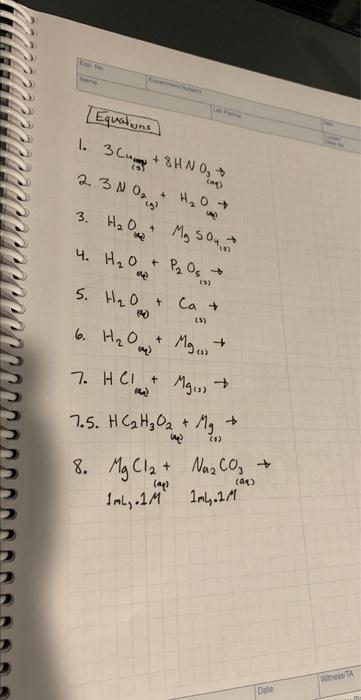 Exp. No.
Experiment/Subject
Name
Lab Partner
Date
Equations
1. 3Cu(s) + 8HNO₃(aq) →
2. 3NO₂(g) + H₂O →
3. H₂O + MgSO₄(s) →
4. H₂O + P₂O₅(s) →
5. H₂O + Ca(s) →
6. H₂O + Mg(s) →
7. HCl + Mg(s) →
7.5. HC₂H₃O₂(aq) + Mg(s) →
8. MgCl₂(aq) + Na₂CO₃(aq) →
1mL, .1M 1mL, .1M
Date
Witness/TA